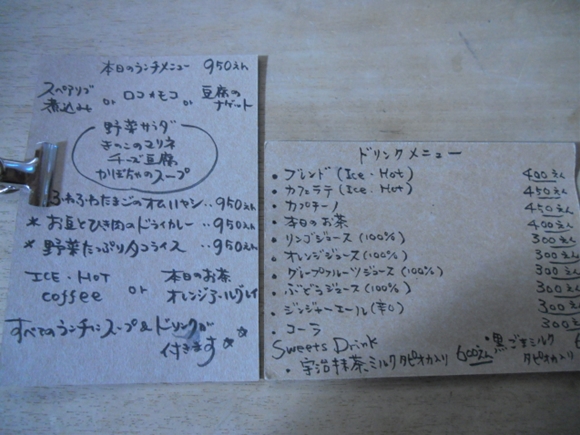 本日のランチメニュー 950えん
スペアリブ煮込み or ロコ・モコ or 豆腐のナゲット
野菜サラダ
きのこのマリネ
チーズ豆腐
かぼちゃのスープ
ふわふわたまごのオムハヤシ ‥950えん
* お豆とひき肉のドライカレー ‥950えん
* 野菜たっぷりタコライス ‥950えん
ICE・HOT coffee or 本日のお茶 オレンジアールグレイ
すべてのランチにスープ&ドリンクが
付きます ☆☆
ドリンクメニュー
・ブレンド (Ice・Hot) 400えん
・カフェラテ (Ice・Hot) 450えん
・カプチーノ 450えん
・本日のお茶 400えん
・リンゴジュース (100%) 300えん
・オレンジジュース (100%) 300えん
・グレープフルーツジュース (100%) 300えん
・ぶどうジュース (100%) 300えん
・ジンジャーエール (辛口) 300えん
・コーラ 300えん
Sweets Drink
・宇治抹茶ミルクタピオカ入り 600えん
・黒ごまミルクタピオカ入り 6